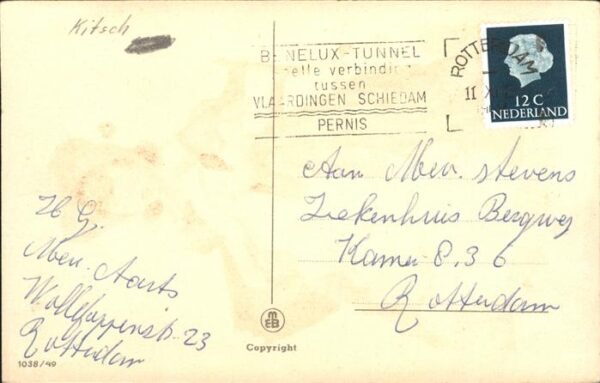 Kitsch
BENELUX-TUNNEL
snelle verbinding
tussen
VLAARDINGEN SCHIEDAM
PERNIS
ROTTERDAM
11 XI
12 C
NEDERLAND
Aan Mevr. stevens
Ziekenhuis Bergweg
Kamer 8.36
Rotterdam
H G.
Mevr. Aarts
23
Rotterdam
MEB
Copyright
1038/49